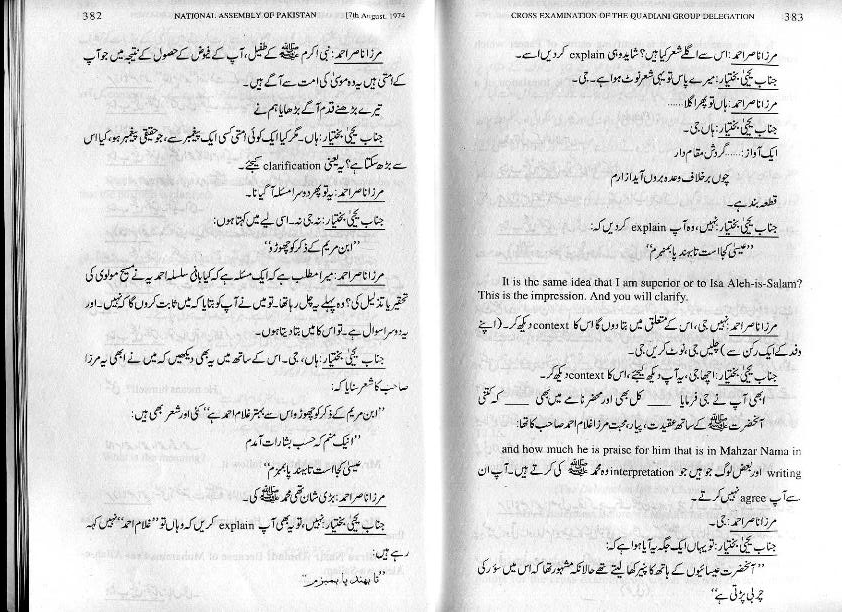 382 NATIONAL ASSEMBLY OF PAKISTAN 17th August, 1974
مرزا ناصر احمد: نبی اکرم ﷺ کے طفیل، آپ کے فیوض کے حصول کے نتیجہ میں جو آپ
کے امتی ہیں یہ وہ موسیٰ کی امت سے آگے ہیں۔
تیرے بڑھنے قدم آگے بڑھایا ہم نے
جناب یحییٰ بختیار: ہاں۔ مگر کیا ایک کوئی امتی کسی ایک پیغمبر سے، جو حقیقی پیغمبر ہو، کیا اس
سے بڑھ سکتا ہے؟ یہ یعنی clarification کیجئے۔
مرزا ناصر احمد: یہ تو پھر دوسرا مسئلہ آ گیا نا۔
جناب یحییٰ بختیار: نہ جی نہ۔ اسی لیے میں کہتا ہوں:
”ابن مریم کے ذکر کو چھوڑو“
مرزا ناصر احمد: میرا مطلب ہے کہ ایک مسئلہ ہے کہ کیا بانی سلسلہ احمدیہ نے مسیح مولوی کی
تحقیر یا تذلیل کی؟ وہ پہلے یہ چل رہا تھا۔ تو میں نے آپ کو بتایا کہ میں ثابت کروں گا کہ نہیں۔ اور
یہ دوسرا سوال ہے۔ تو اس کا میں بتا دیتا ہوں۔
جناب یحییٰ بختیار: ہاں، جی۔ اس کے ساتھ میں یہ بھی دیکھیں کہ میں نے ابھی یہ مرزا
صاحب کا شعر سنایا کہ:
”ابن مریم کے ذکر کو چھوڑو اس سے بہتر غلام احمد ہے“ کئی اور شعر بھی ہیں:
”اینک منم کہ حسب بشارات آمدم
عیسیٰ کجا است تا بنہد پا بمنبرم“
مرزا ناصر احمد: بڑی شان تھی محمد ﷺ کی۔
جناب یحییٰ بختیار: نہیں، تو یہ بھی آپ explain کریں کہ وہاں تو ”غلام احمد“ نہیں کہہ
رہے ہیں:
”تا بنہد پا بمنبرم“
CROSS EXAMINATION OF THE QUADIANI GROUP DELEGATION 383
مرزا ناصر احمد: اس سے اگلے شعر کیا ہیں؟ شاید وہی explain کر دیں اسے۔
جناب یحییٰ بختیار: میرے پاس تو یہی شعر نوٹ ہوا ہے۔ جی۔
مرزا ناصر احمد: ہاں تو پھر اگلا......
جناب یحییٰ بختیار: ہاں جی۔
ایک آواز: ......گردش مقام دار
چوں بر خلاف وعدہ بروں آید از ارم
قطعہ بند ہے۔
جناب یحییٰ بختیار: نہیں، وہ آپ explain کر دیں کہ:
”عیسیٰ کجا است تا بنہد پا بمنبرم“
It is the same idea that I am superior or to Isa Aleh-is-Salam?
This is the impression. And you will clarify.
مرزا ناصر احمد: نہیں جی، اس کے متعلق میں بتا دوں گا اس کا context دیکھ کر۔ (اپنے
وفد کے ایک رکن سے) چلیں جی، نوٹ کریں جی۔
جناب یحییٰ بختیار: اچھا جی، یہ آپ دیکھ لیجئے، اس کا context دیکھ کر۔
ابھی آپ نے جی فرمایا ____ کل بھی اور محضر نامے میں بھی ____ کہ کتنی
آنحضرت ﷺ کے ساتھ عقیدت، پیار، محبت مرزا غلام احمد صاحب کا تھا:
and how much he is praise for him that is in Mahzar Nama in
writing اور بعض لوگ جو ہیں جو interpretation وہ محمد ﷺ کی کرتے ہیں۔ آپ ان
سے آپ agree نہیں کرتے۔
مرزا ناصر احمد: جی۔
جناب یحییٰ بختیار: تو یہاں ایک جگہ یہ آیا ہوا ہے کہ:
”آنحضرت عیسائیوں کے ہاتھ کا پنیر کھا لیتے تھے حالانکہ مشہور تھا کہ اس میں سؤر کی
چربی پڑتی ہے“